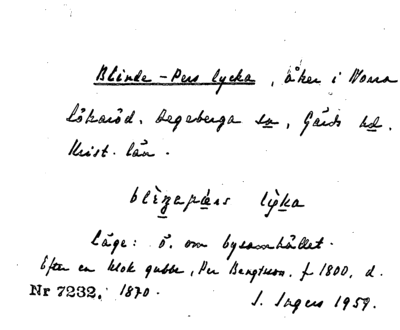 Blinde-Pers lycka, åker i Norra
Sökaröd. Degeberga sn, Gärds hd.
Krist. län.
lycka
Läge: ö. om bysamhället.
Efter en klok gubbe, Per Bengtsson. f 1800, d.
Nr 7232. 1870.
J. Ingers 1959.